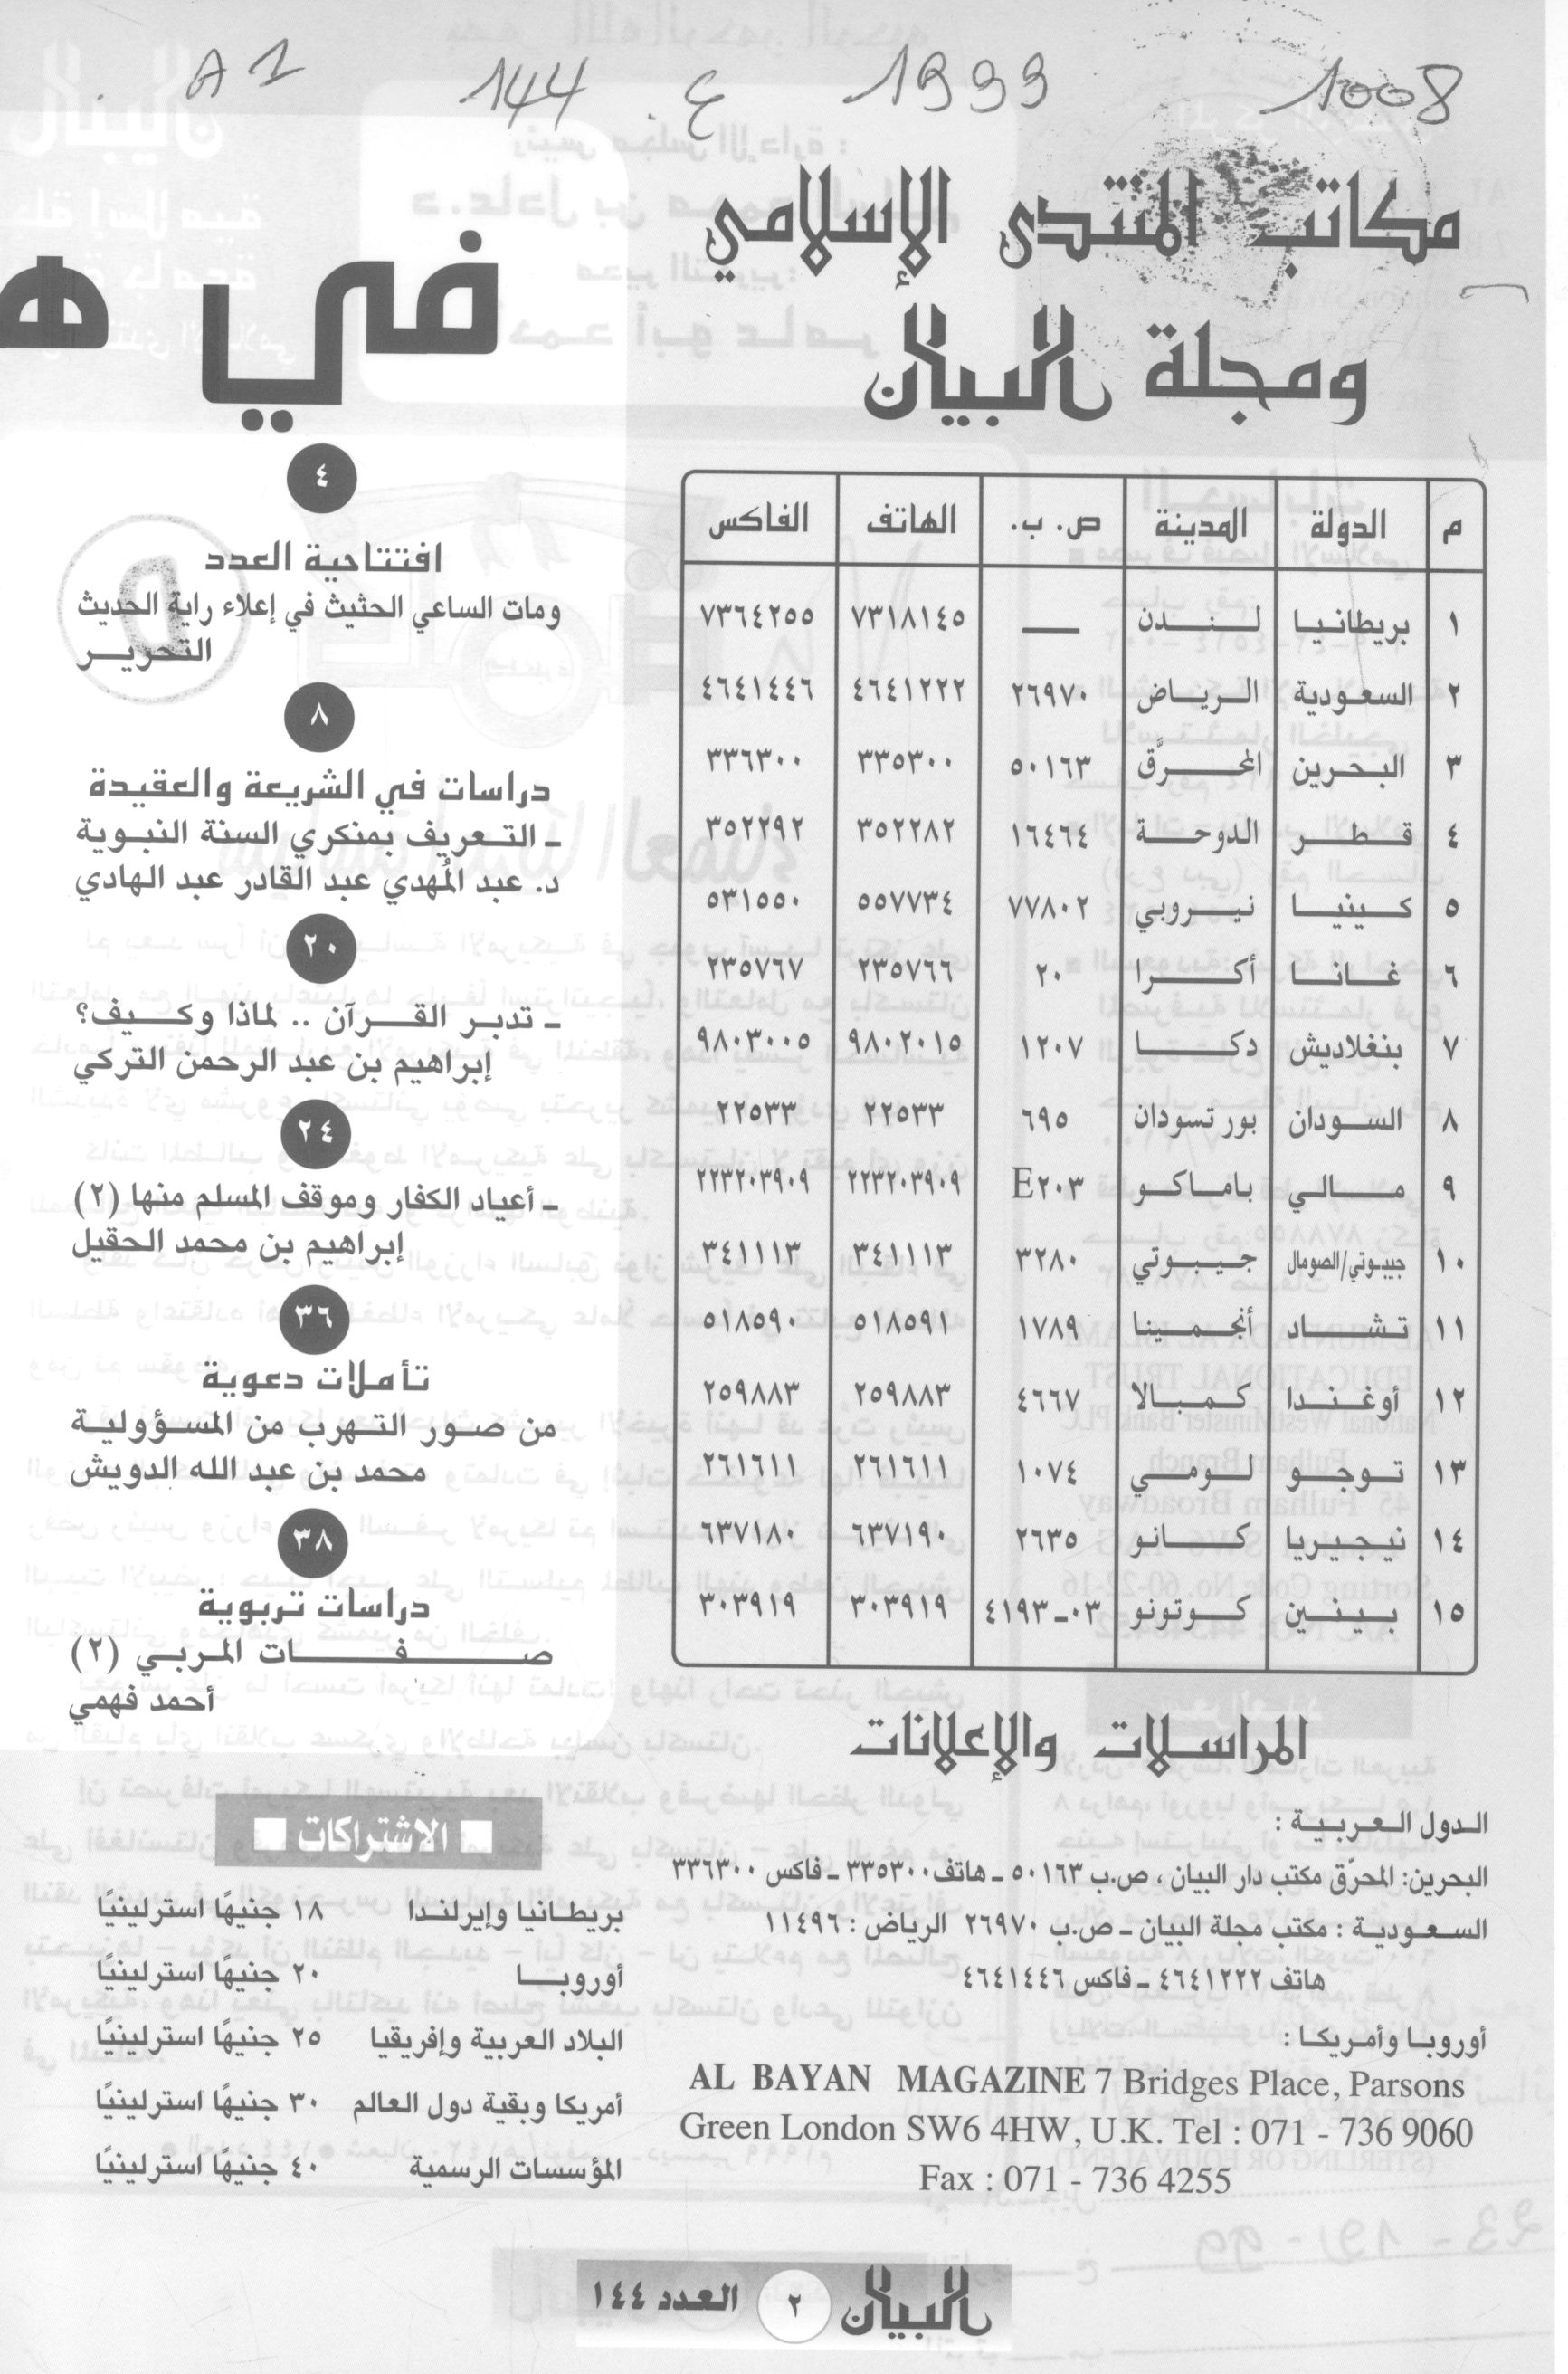 1008 1999 ع. 144 A 1
مكاتب المنتدى الإسلامي
ومجلة البيان
م الدولة المدينة ص. ب. الهاتف الفاكس
١ بريطانيا لندن — ٧٣١٨١٤٥ ٧٣٦٤٢٥٥
٢ السعودية الرياض ٢٦٩٧٠ ٤٦٤١٢٢٢ ٤٦٤١٤٤٦
٣ البحرين المحرَّق ٥٠١٦٣ ٣٣٥٣٠٠ ٣٣٦٣٠٠
٤ قطر الدوحة ١٦٤٦٤ ٣٥٢٢٨٢ ٣٥٢٢٩٢
٥ كينيا نيروبي ٧٧٨٠٢ ٥٥٧٧٣٤ ٥٣١٥٥٠
٦ غانا أكرا ٢٠ ٢٣٥٧٦٦ ٢٣٥٧٦٧
٧ بنغلاديش دكا ١٢٠٧ ٩٨٠٢٠١٥ ٩٨٠٣٠٠٥
٨ السودان بور تسودان ٦٩٥ ٢٢٥٣٣ ٢٢٥٣٣
٩ مالي باماكو E٢٠٣ ٢٢٣٢٠٣٩٠٩ ٢٢٣٢٠٣٩٠٩
١٠ جيبوتي/الصومال جيبوتي ٣٢٨٠ ٣٤١١١٣ ٣٤١١١٣
١١ تشاد أنجمينا ١٧٨٩ ٥١٨٥٩١ ٥١٨٥٩٠
١٢ أوغندا كمبالا ٤٦٦٧ ٢٥٩٨٨٣ ٢٥٩٨٨٣
١٣ توجو لومي ١٠٧٤ ٢٦١٦١١ ٢٦١٦١١
١٤ نيجيريا كانو ٢٦٣٥ ٦٣٧١٩٠ ٦٣٧١٨٠
١٥ بينين كوتونو ٠٣-٤١٩٣ ٣٠٣٩١٩ ٣٠٣٩١٩
المراسلات والإعلانات
الدول العربية :
البحرين: المحرّق مكتب دار البيان ، ص.ب ٥٠١٦٣ ـ هاتف ٣٣٥٣٠٠ ـ فاكس ٣٣٦٣٠٠
السعودية : مكتب مجلة البيان ـ ص.ب ٢٦٩٧٠ الرياض : ١١٤٩٦
هاتف ٤٦٤١٢٢٢ ـ فاكس ٤٦٤١٤٤٦
أوروبا وأمريكا :
AL BAYAN MAGAZINE 7 Bridges Place, Parsons
Green London SW6 4HW, U.K. Tel : 071 - 736 9060
Fax : 071 - 736 4255
في ه
٤
افتتاحية العدد
ومات الساعي الحثيث في إعلاء راية الحديث
التحرير
٨
دراسات في الشريعة والعقيدة
ـ التعريف بمنكري السنة النبوية
د. عبد المُهدي عبد القادر عبد الهادي
٢٠
ـ تدبر القرآن .. لماذا وكيف؟
إبراهيم بن عبد الرحمن التركي
٢٤
ـ أعياد الكفار وموقف المسلم منها (٢)
إبراهيم بن محمد الحقيل
٣٦
تأملات دعوية
من صور التهرب من المسؤولية
محمد بن عبد الله الدويش
٣٨
دراسات تربوية
صفات المربي (٢)
أحمد فهمي
■ الاشتراكات ■
بريطانيا وإيرلندا ١٨ جنيهًا استرلينيًا
أوروبا ٢٠ جنيهًا استرلينيًا
البلاد العربية وإفريقيا ٢٥ جنيهًا استرلينيًا
أمريكا وبقية دول العالم ٣٠ جنيهًا استرلينيًا
المؤسسات الرسمية ٤٠ جنيهًا استرلينيًا
البيان ٢ العدد ١٤٤